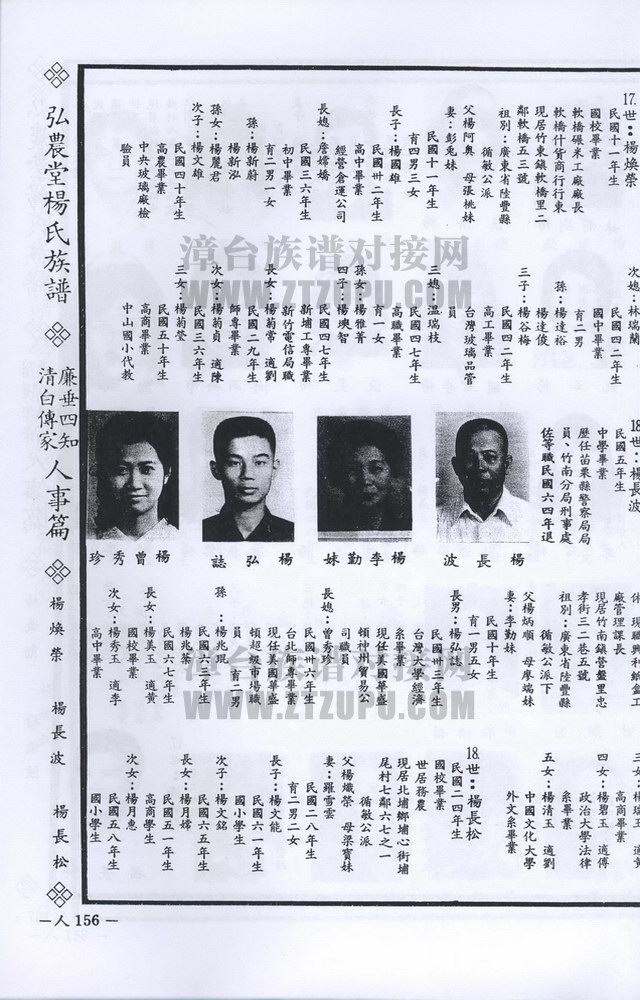 17.世：楊煥榮
民國十一年生
國校畢業
軟橋碾米工廠廠長
軟橋什貨商行行東
現居竹東鎮軟橋里二
鄰軟橋五三號
祖別：廣東省陸豐縣
循敏公派
父楊阿興 母張桃妹
妻：彭兎妹
民國十一年生
育四男三女
長子：楊國雄
民國卅二年生
高中畢業
經營倉運公司
長媳：詹嫦嬌
民國三六年生
初中畢業
育二男一女
孫：楊新蔚
楊新泓
孫女：楊麗君
次子：楊文雄
民國四十年生
高農畢業
中央玻璃廠檢
驗員
次媳：林瑞蘭
民國四二年生
國中畢業
育二男
孫：楊達裕
楊達俊
三子：楊谷梅
民國四二年生
高工畢業
台灣玻璃品管
員
三媳：溫瑞枝
民國四七年生
高職畢業
育一女
孫女：楊雅菁
四子：楊墺智
民國四七年生
新埔工專畢業
新竹電信局職
長女：楊菊常 適劉
民國二九年生
師專畢業
次女：楊菊貞 適陳
民國三六年生
三女：楊菊瑩
民國五十年生
高商畢業
中山國小代教
18.世：楊長波
民國五年生
中學畢業
歷任苗栗縣警察局局
員、竹南分局刑事處
佐等職民國六四年退
楊長波
楊李勤妹
楊弘誌
楊曾秀珍
休，現職興利紙盒工
廠管理課長
現居竹南鎮營盤里忠
孝街三二巷五號
祖別：廣東省陸豐縣
循敏公派下
父楊炳順 母廖端妹
妻：李勤妹
民國十年生
育一男五女
長男：楊弘誌
民國卅三年生
台灣大學經濟
系畢業
現任美國華盛
頓神州貿易公
司職員
長媳：曾秀珍
民國卅六年生
台北師專畢業
現任美國華盛
頓超級市場職
員 育二男
孫：楊兆琨
民國六三年生
楊兆棻
民國六七年生
長女：楊美玉 適黃
國校畢業
次女：楊秀玉 適李
高中畢業
三女：楊瑞玉 適黃
高商畢業
四女：楊碧玉 適傅
政治大學法律
系畢業
五女：楊清玉 適劉
中國文化大學
外文系畢業
18.世：楊長松
民國二四年生
國校畢業
世居務農
現居北埔鄉埔心街埔
尾村七鄰六七之一
循敏公派
父楊熾榮 母梁寶妹
妻：羅雪雲
民國二八年生
育二男二女
長子：楊文能
民國六一年生
國小學生
次子：楊文銘
民國六五年生
長女：楊月嫦
民國五一年生
高商學生
次女：楊月惠
民國五八年生
國小學生
弘農堂楊氏族譜
廉垂四知
清白傳家
人事篇
楊煥榮
楊長波
楊長松
－人156－
漳台族谱对接网
WWW.ZTZUPU.COM
漳台族谱对接网
WWW.ZTZUPU.COM